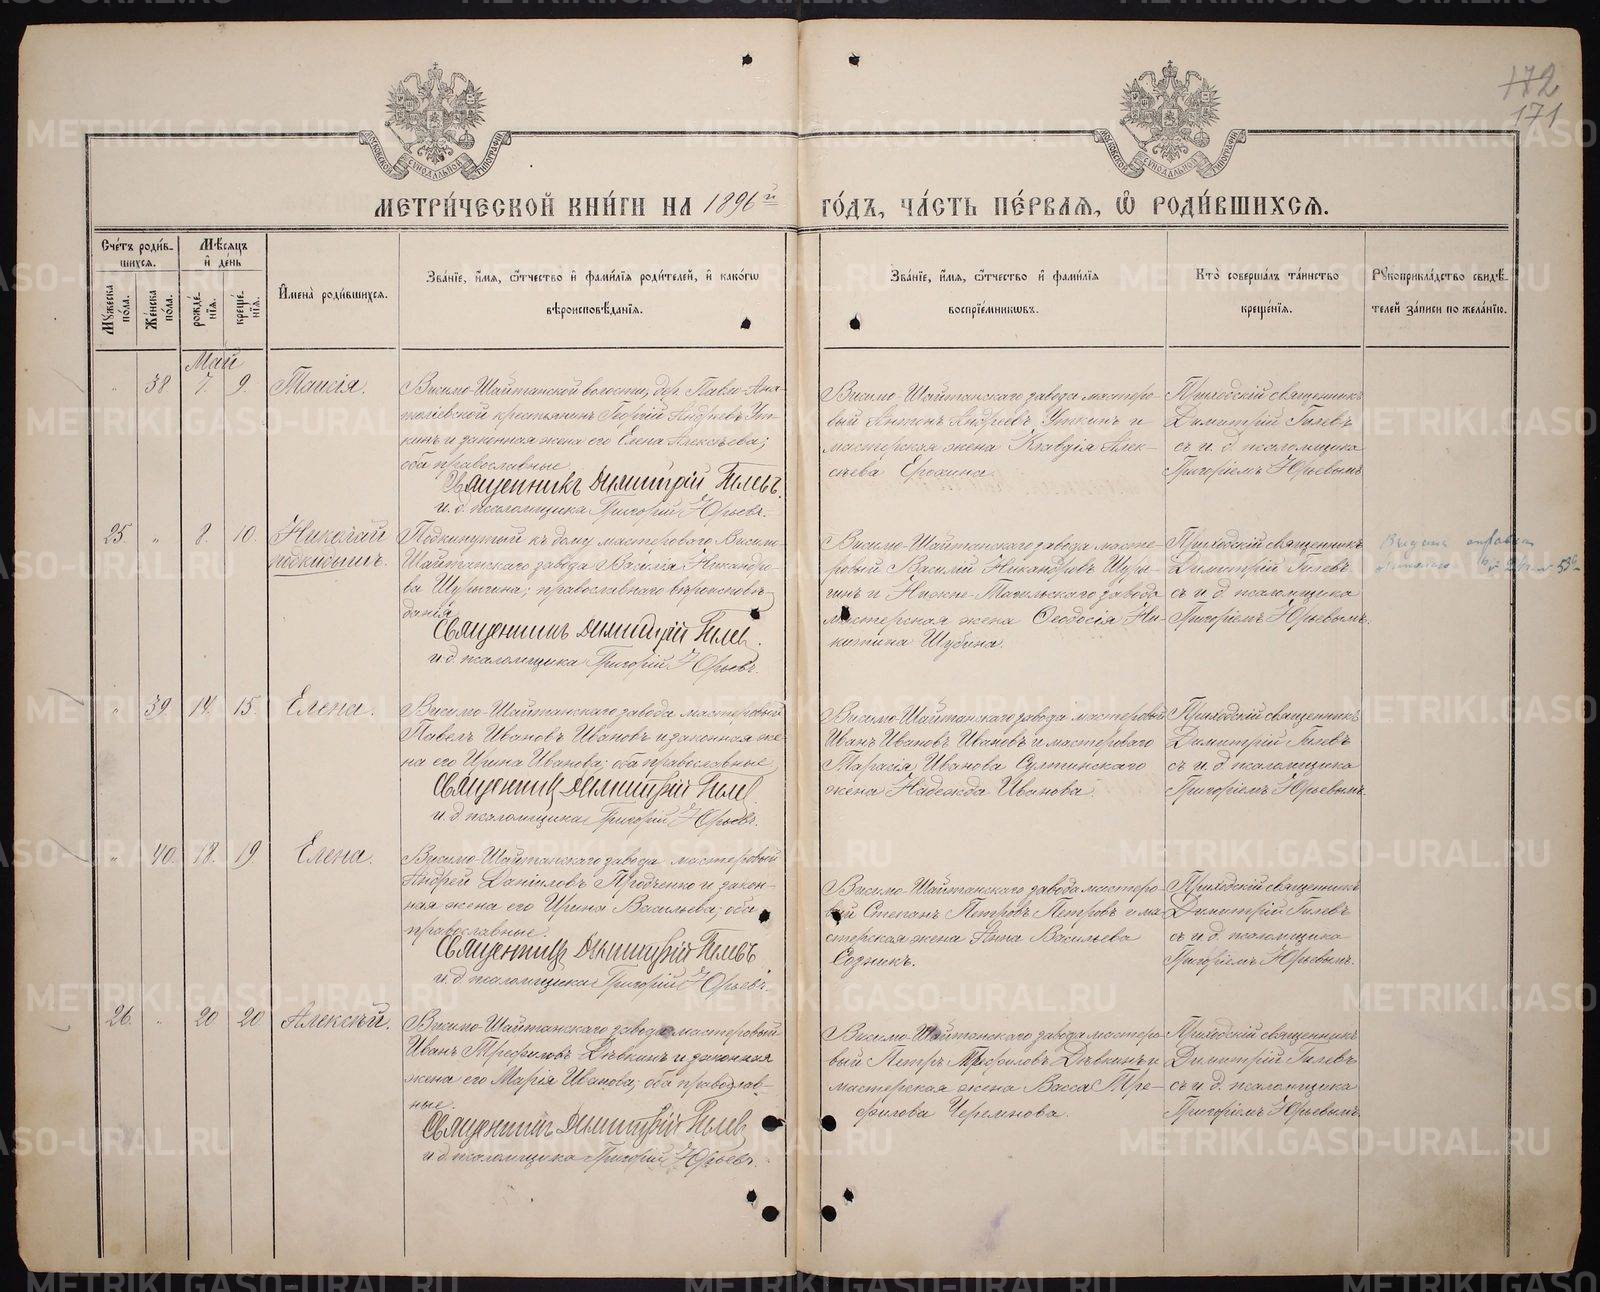 172
171
МЕТРИ́ЧЕСКОЙ КНИ́ГИ НА 1896й ГО́ДЪ, ЧА́СТЬ ПЕ́РВАѦ, Ѽ РОДИ́ВШИХСѦ.
Сче́тъ роди́вшихсѧ.
Мꙋжеска по́ла.
Же́нска по́ла.
Мѣ́сѧцъ и҆ де́нь
рожде́нїѧ.
креще́нїѧ.
И҆мена̀ роди́вшихсѧ.
Зва́нїе, и҆́мѧ, ѻ҆́тчество и҆ фами́лїѧ роди́телей, и҆ како́гѡ
вѣроисповѣ́данїѧ.
Зва́нїе, и҆́мѧ, ѻ҆́тчество и҆ фами́лїѧ
воспрїе́мникѡвъ.
Кто̀ соверша́лъ та́инство
креще́нїѧ.
Рꙋкоприкла́дство свидѣ́телей за́писи по жела́нїю.
Май
" 38 7. 9. Таисія.
Висимо-Шайтанской волости, дер. Павло-Ана-
толіевской крестьянинъ Георгій Андреевъ Ут-
кинъ и законная жена его Елена Алексѣева;
оба православные
Священникъ Димитрій Гилевъ.
и. д. псаломщика Григорій Юрьевъ.
Висимо-Шайтанскаго завода мастеро-
вый Антонъ Андреевъ Уткинъ и
мастерская жена Клавдія Алек-
сѣева Ерохина.
Приходскій священникъ
Димитрій Гилевъ
съ и. д. псаломщика
Григоріемъ Юрьевымъ
25. " 8. 10. Николай
подкидышъ.
Подкинутый къ дому мастероваго Висимо-
Шайтанскаго завода Василія Никандро-
ва Шурыгина; православнаго вѣроисповѣ-
данія
Священникъ Димитрій Гилев.
и. д. псаломщика Григорій Юрьевъ.
Висимо-Шайтанскаго завода масте-
ровый Василій Никандровъ Шуры-
гинъ и Нижне-Тагильскаго завода
мастерская жена Ѳеодосія Ни-
китина Шубина.
Приходскій священникъ
Димитрій Гилевъ
съ и. д. псаломщика
Григоріемъ Юрьевымъ.
" 39. 14. 15. Елена.
Висимо-Шайтанскаго завода мастеровый
Павелъ Ивановъ Ивановъ и законная же-
на его Ирина Иванова; оба православные
Священник Димитрій Гилев
и. д. псаломщика Григорій Юрьевъ.
Висимо-Шайтанскаго завода мастеровый
Иванъ Ивановъ Ивановъ и мастероваго
Тарасія Иванова
жена Надежда Иванова.
Приходскій священникъ
Димитрій Гилевъ
съ и. д. псаломщика
Григоріемъ Юрьевымъ.
" 40. 18. 19. Елена.
Висимо-Шайтанскаго завода мастеровый
Андрей Даніиловъ и закон-
ная жена его Ирина Васильева; оба
православные.
Священник Димитрій Гилевъ
и. д. псаломщика Григорій Юрьевъ.
Висимо-Шайтанскаго завода мастеро-
вый Степанъ Петровъ Петровъ и ма-
стерская жена Анна Васильева
Приходскій священникъ
Димитрій Гилевъ
съ и. д. псаломщика
Григоріемъ Юрьевымъ.
26. " 20 20 Алексѣй.
Висимо-Шайтанскаго завода мастеровый
Иванъ Трефиловъ Дѣвкинъ и законная
жена его Марія Иванова; оба православ-
ные.
Священник Димитрій Гилев
и. д. псаломщика Григорій Юрьевъ.
Висимо-Шайтанскаго завода мастеро-
вый Петръ Трефиловъ Дѣвкинъ и
мастерская жена Васса Тре-
филова Черемнова.
Приходскій священникъ
Димитрій Гилевъ
съ и. д. псаломщика
Григоріемъ Юрьевымъ.
METRIKI.GASO-URAL.RU